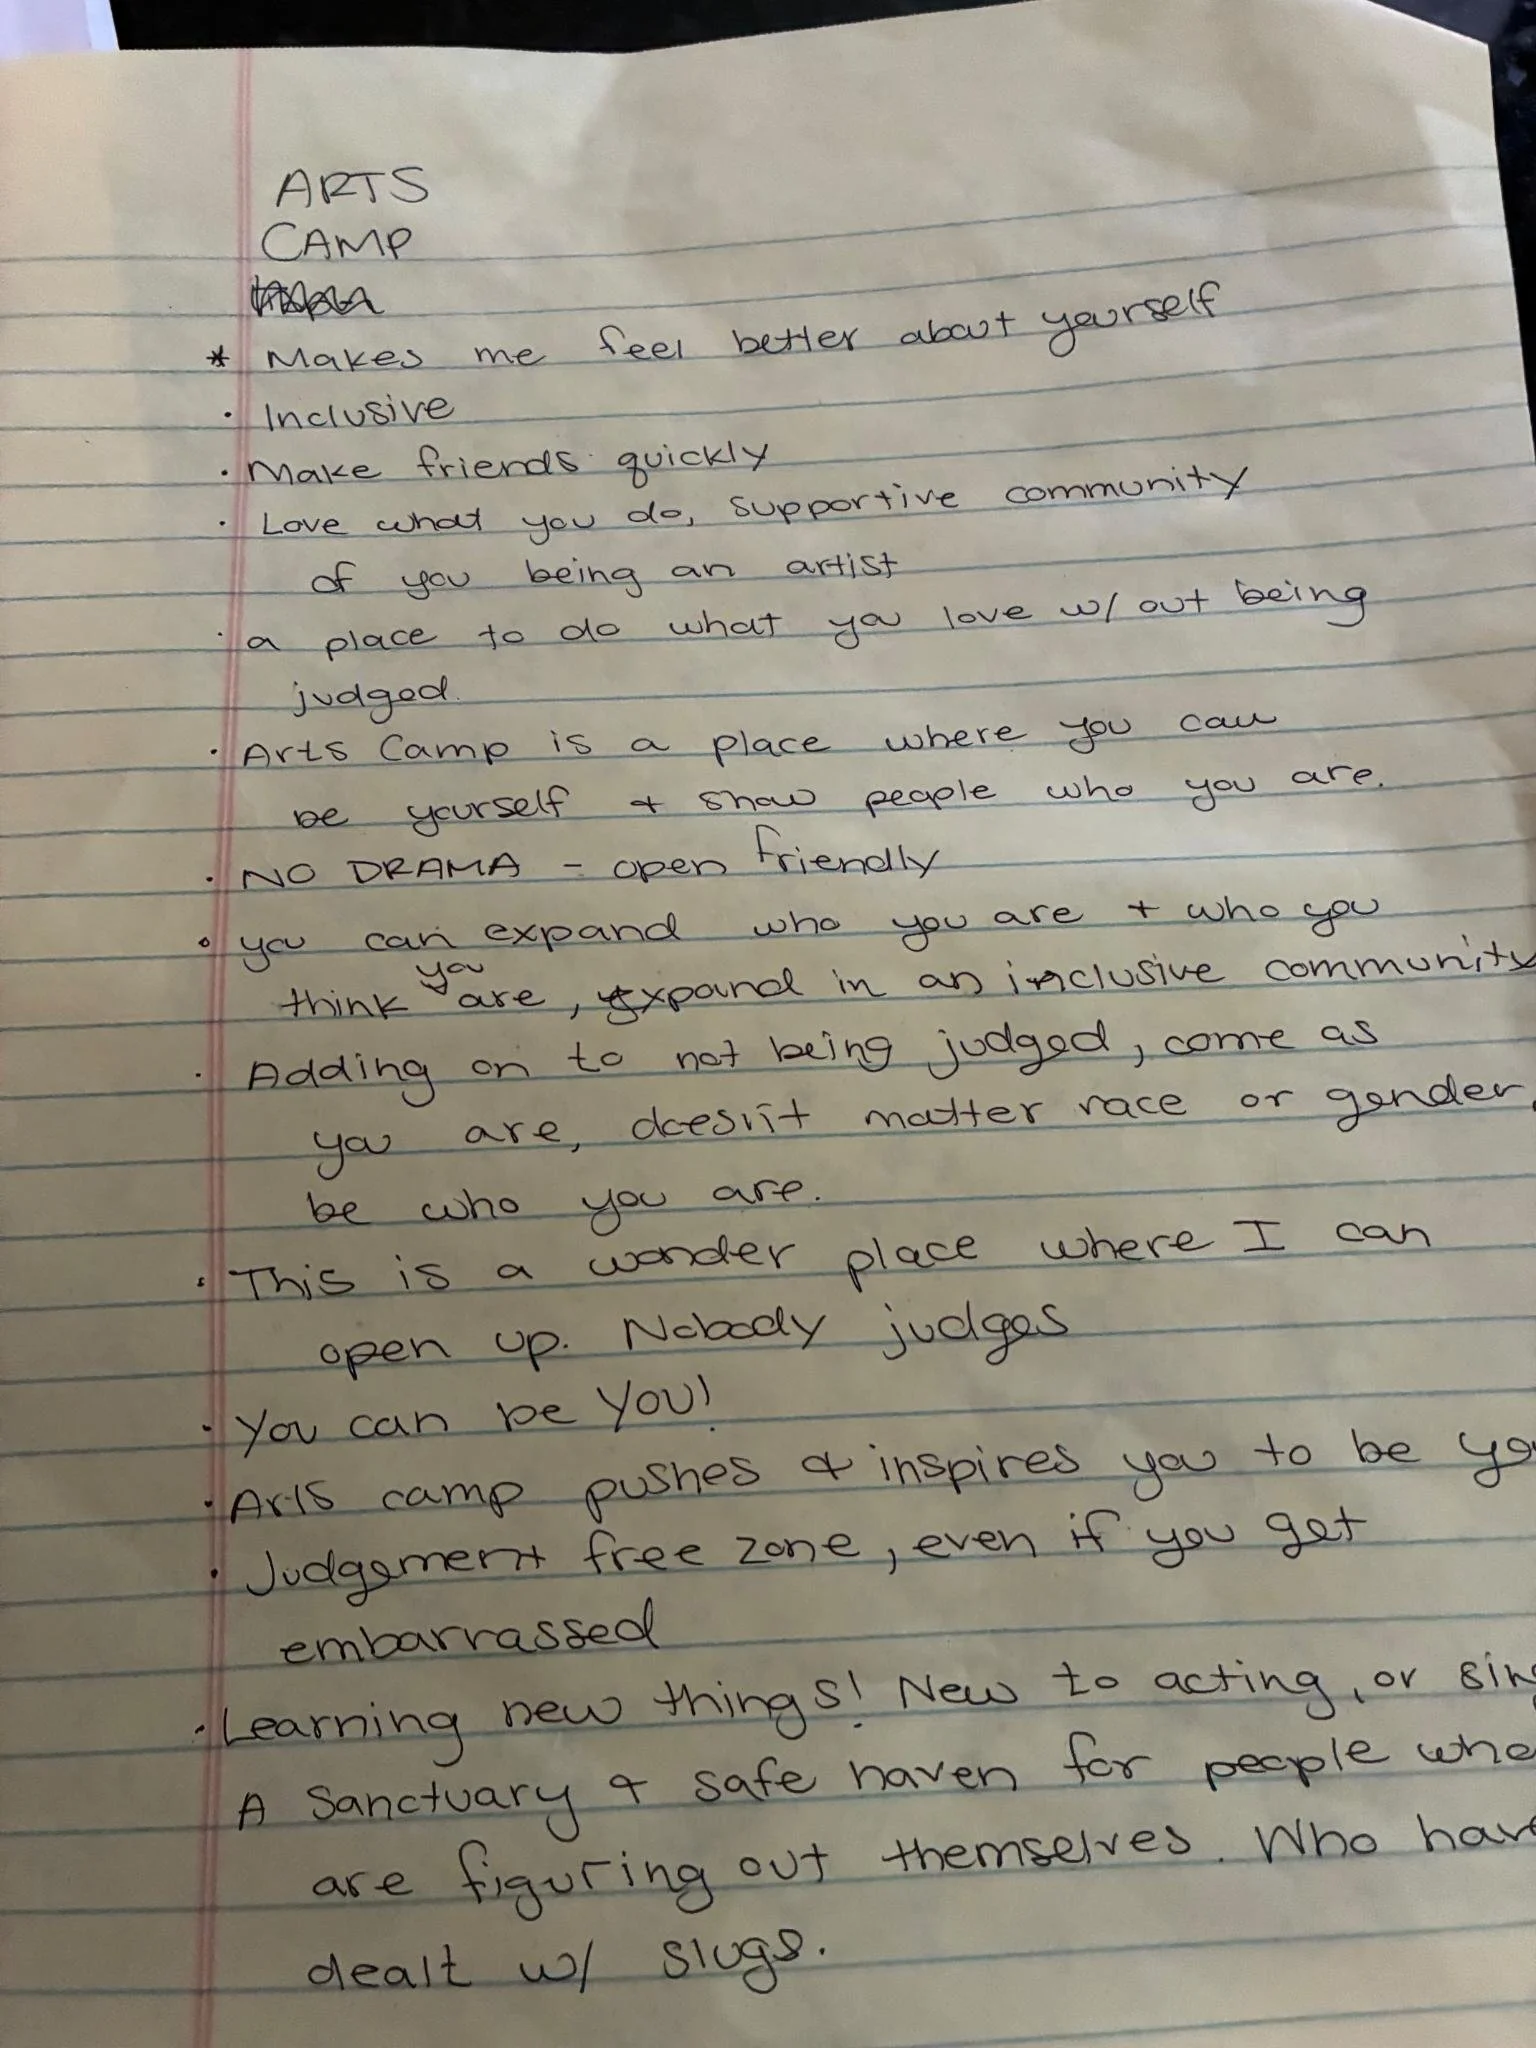 ARTS
CAMP
* Makes me feel better about yourself
· Inclusive
· Make friends quickly
· Love what you do, supportive community
of you being an artist
· a place to do what you love w/out being
judged.
· Arts Camp is a place where you can
be yourself & show people who you are.
· NO DRAMA - open friendly
· you can expand who you are + who you
think you are, expand in an inclusive community
· Adding on to not being judged, come as
you are, doesn't matter race or gender,
be who you are.
· This is a wonder place where I can
open up. Nobody judges
· You can be YOU!
· Arts camp pushes & inspires you to be
· Judgement free zone, even if you get
embarrassed
· Learning new things! New to acting, or
A Sanctuary & safe haven for people who
are figuring out themselves. Who have
dealt w/ slugs.